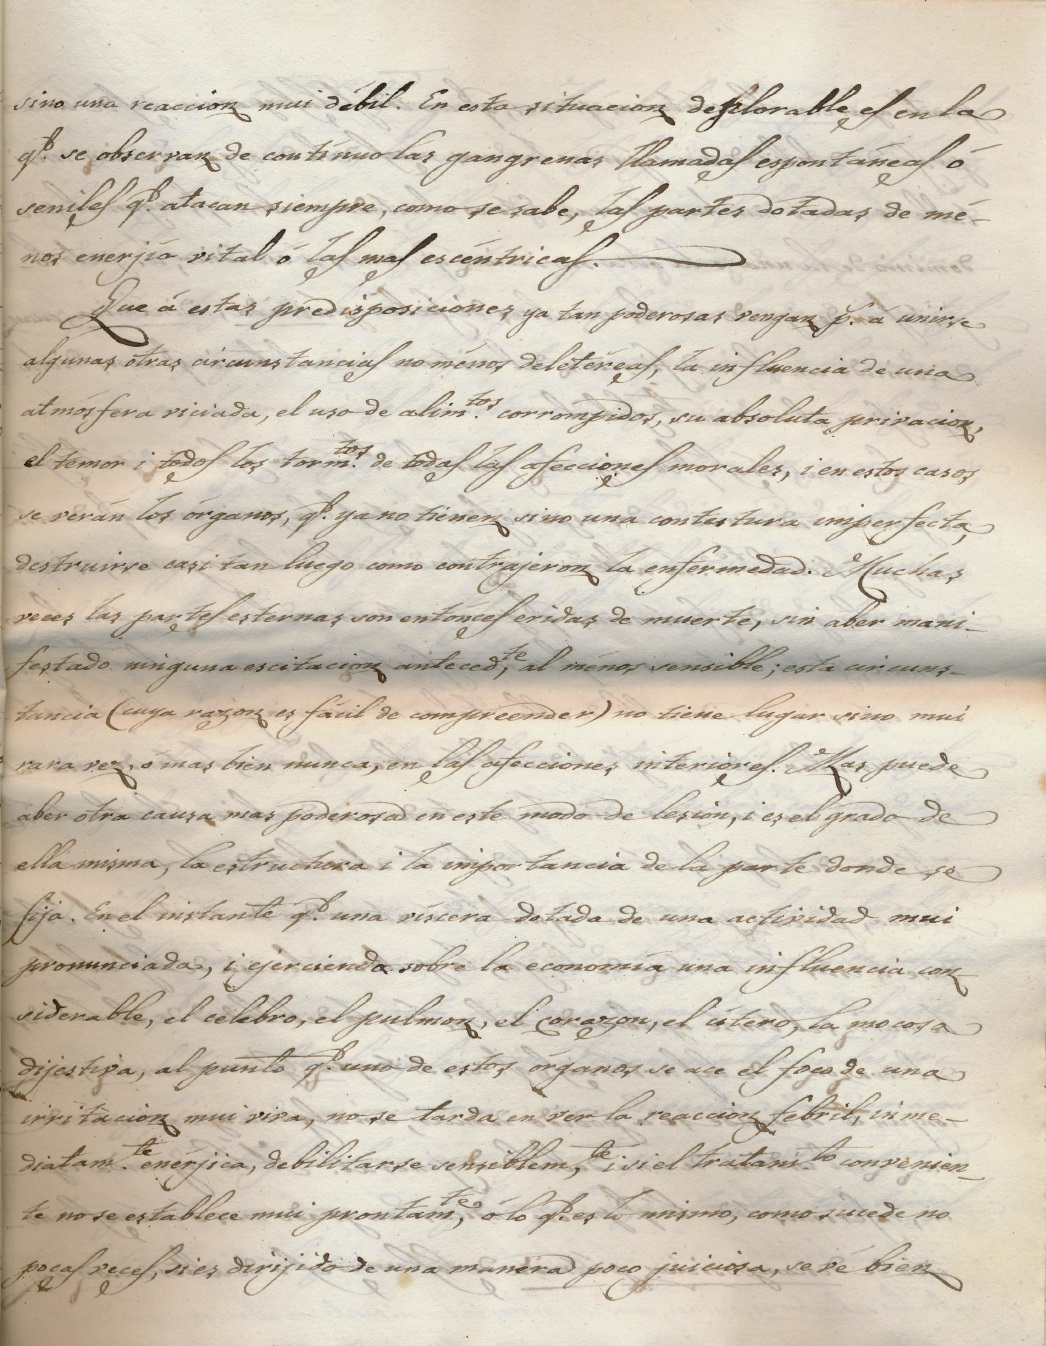 sino una reaccion mui débil. En esta situacion deplorable es en la
q.e se observan de contínuo las gangrenas llamadas espontáneas ó
seniles q.e atacan siempre, como se sabe, las partes dotadas de mé-
nos enerjía vital ó las mas escéntricas.
Que á estas predisposiciones ya tan poderosas vengan p.r á unirse
algunas otras circunstancias no ménos deletéreas, la influencia de una
atmósfera viciada, el uso de alim.tos corrompidos, su absoluta privacion,
el temor i todos los torm.tos de todas las afecciones morales, i en estos casos
se verán los órganos, q.e ya no tienen sino una contestura imperfecta,
destruirse casi tan luego como contrajeron la enfermedad. Muchas
veces las partes esternas son entónces eridas de muerte, sin aber mani-
festado ninguna escitacion anteced.te, al ménos sensible; esta circuns-
tancia (cuya razon es fácil de compreender) no tiene lugar sino mui
rara vez, ó mas bien nunca, en las afecciones interiores. Mas puede
aber otra causa mas poderosa en este modo de lesion, i es el grado de
ella misma, la estructura i la importancia de la parte donde se
fija. En el instante q.e una víscera dotada de una actividad mui
pronunciada, i ejerciendo sobre la economía una influencia con
siderable, el celebro, el pulmon, el corazon, el útero, la mocosa
dijestiva, al punto q.e uno de estos órganos se ace el foco de una
irritacion mui viva, no se tarda en ver la reaccion febril, inme-
diatam.te enérjica, debilitarse sensiblem.te, i si el tratam.to convenien-
te no se establece mui prontam.te, ó lo q.e es lo mismo, como sucede no
pocas veces, si es dirijido de una manera poco juiciosa, se vé bien